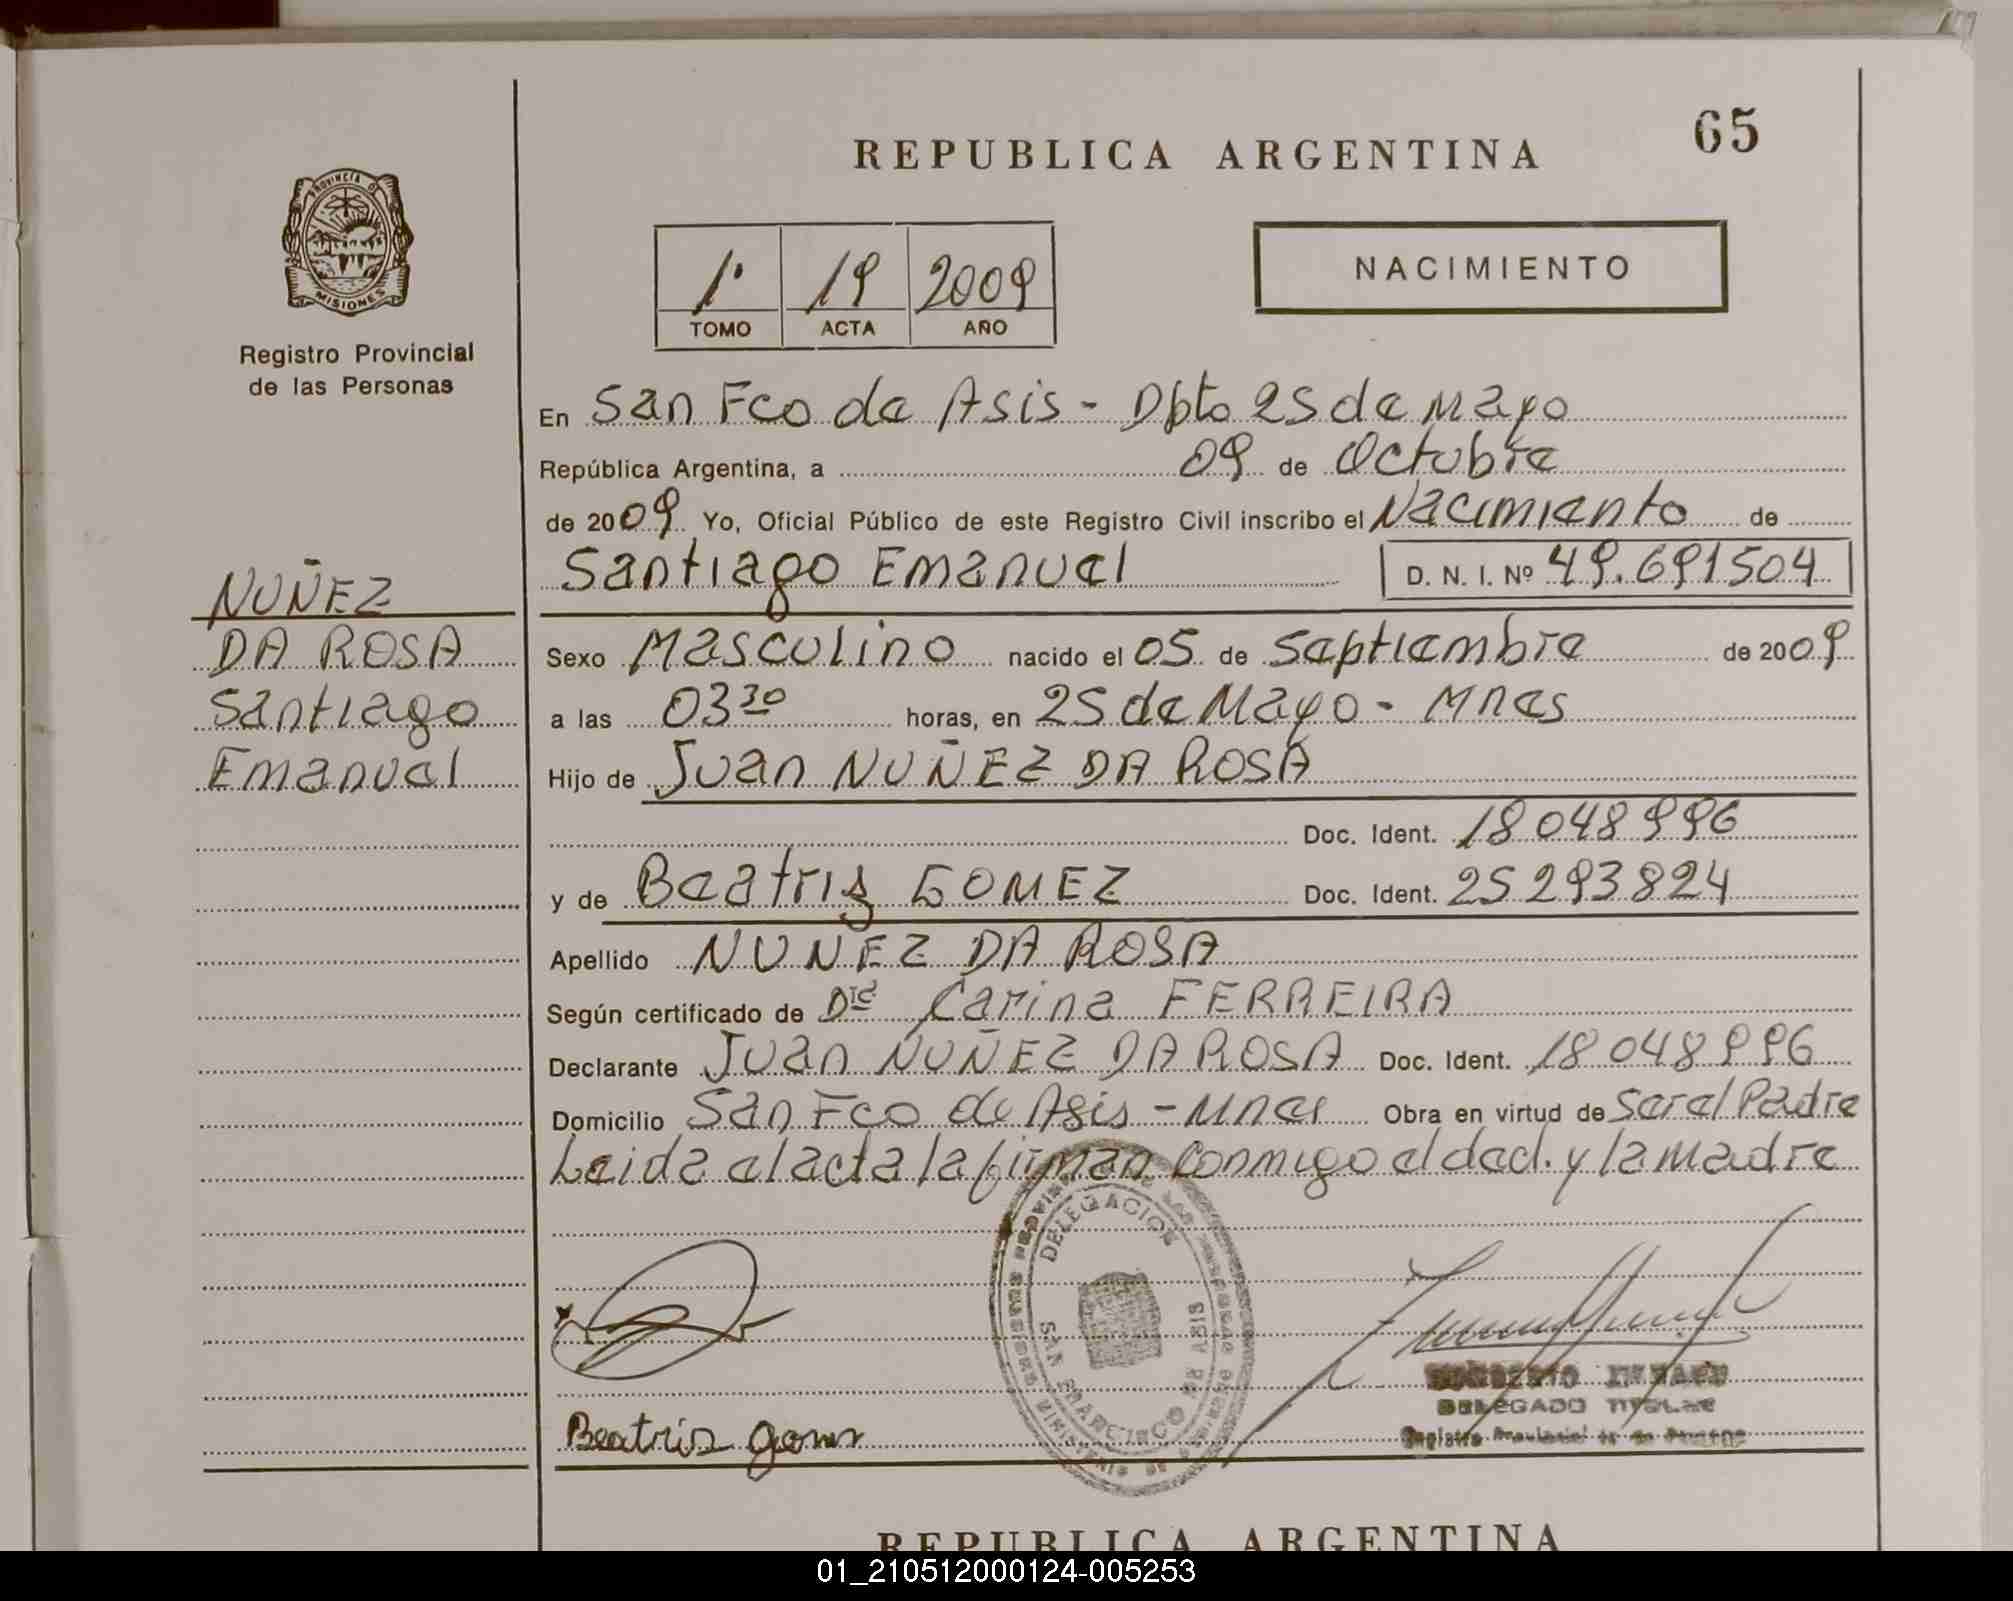 65
REPUBLICA ARGENTINA
PROVINCIA DE
MISIONES
Registro Provincial
de las Personas
1º 19 2009
TOMO ACTA AÑO
NACIMIENTO
En San Fco de Asis - Dpto 25 de Mayo
República Argentina, a 09 de Octubre
de 2009 Yo, Oficial Público de este Registro Civil inscribo el Nacimiento de
Santiago Emanuel D. N. I. Nº 49.691504
NUÑEZ
DA ROSA
Santiago
Emanuel
Sexo Masculino nacido el 05 de Septiembre de 2009
a las 03 30 horas, en 25 de Mayo - Mnes
Hijo de Juan NUÑEZ DA ROSA
Doc. Ident. 18048996
y de Beatris GOMEZ Doc. Ident. 25293824
Apellido NUNEZ DA ROSA
Según certificado de Dra Carina FERREIRA
Declarante Juan NUÑEZ DA ROSA Doc. Ident. 18048996
Domicilio San Fco de Asis - Mnes Obra en virtud de Ser el Padre
Leida el acta la firman conmigo el decl. y la Madre
DELEGACION
SAN FRANCISCO DE ASIS
DELEGADO TITULAR
Beatris
REPUBLICA ARGENTINA
01_210512000124-005253